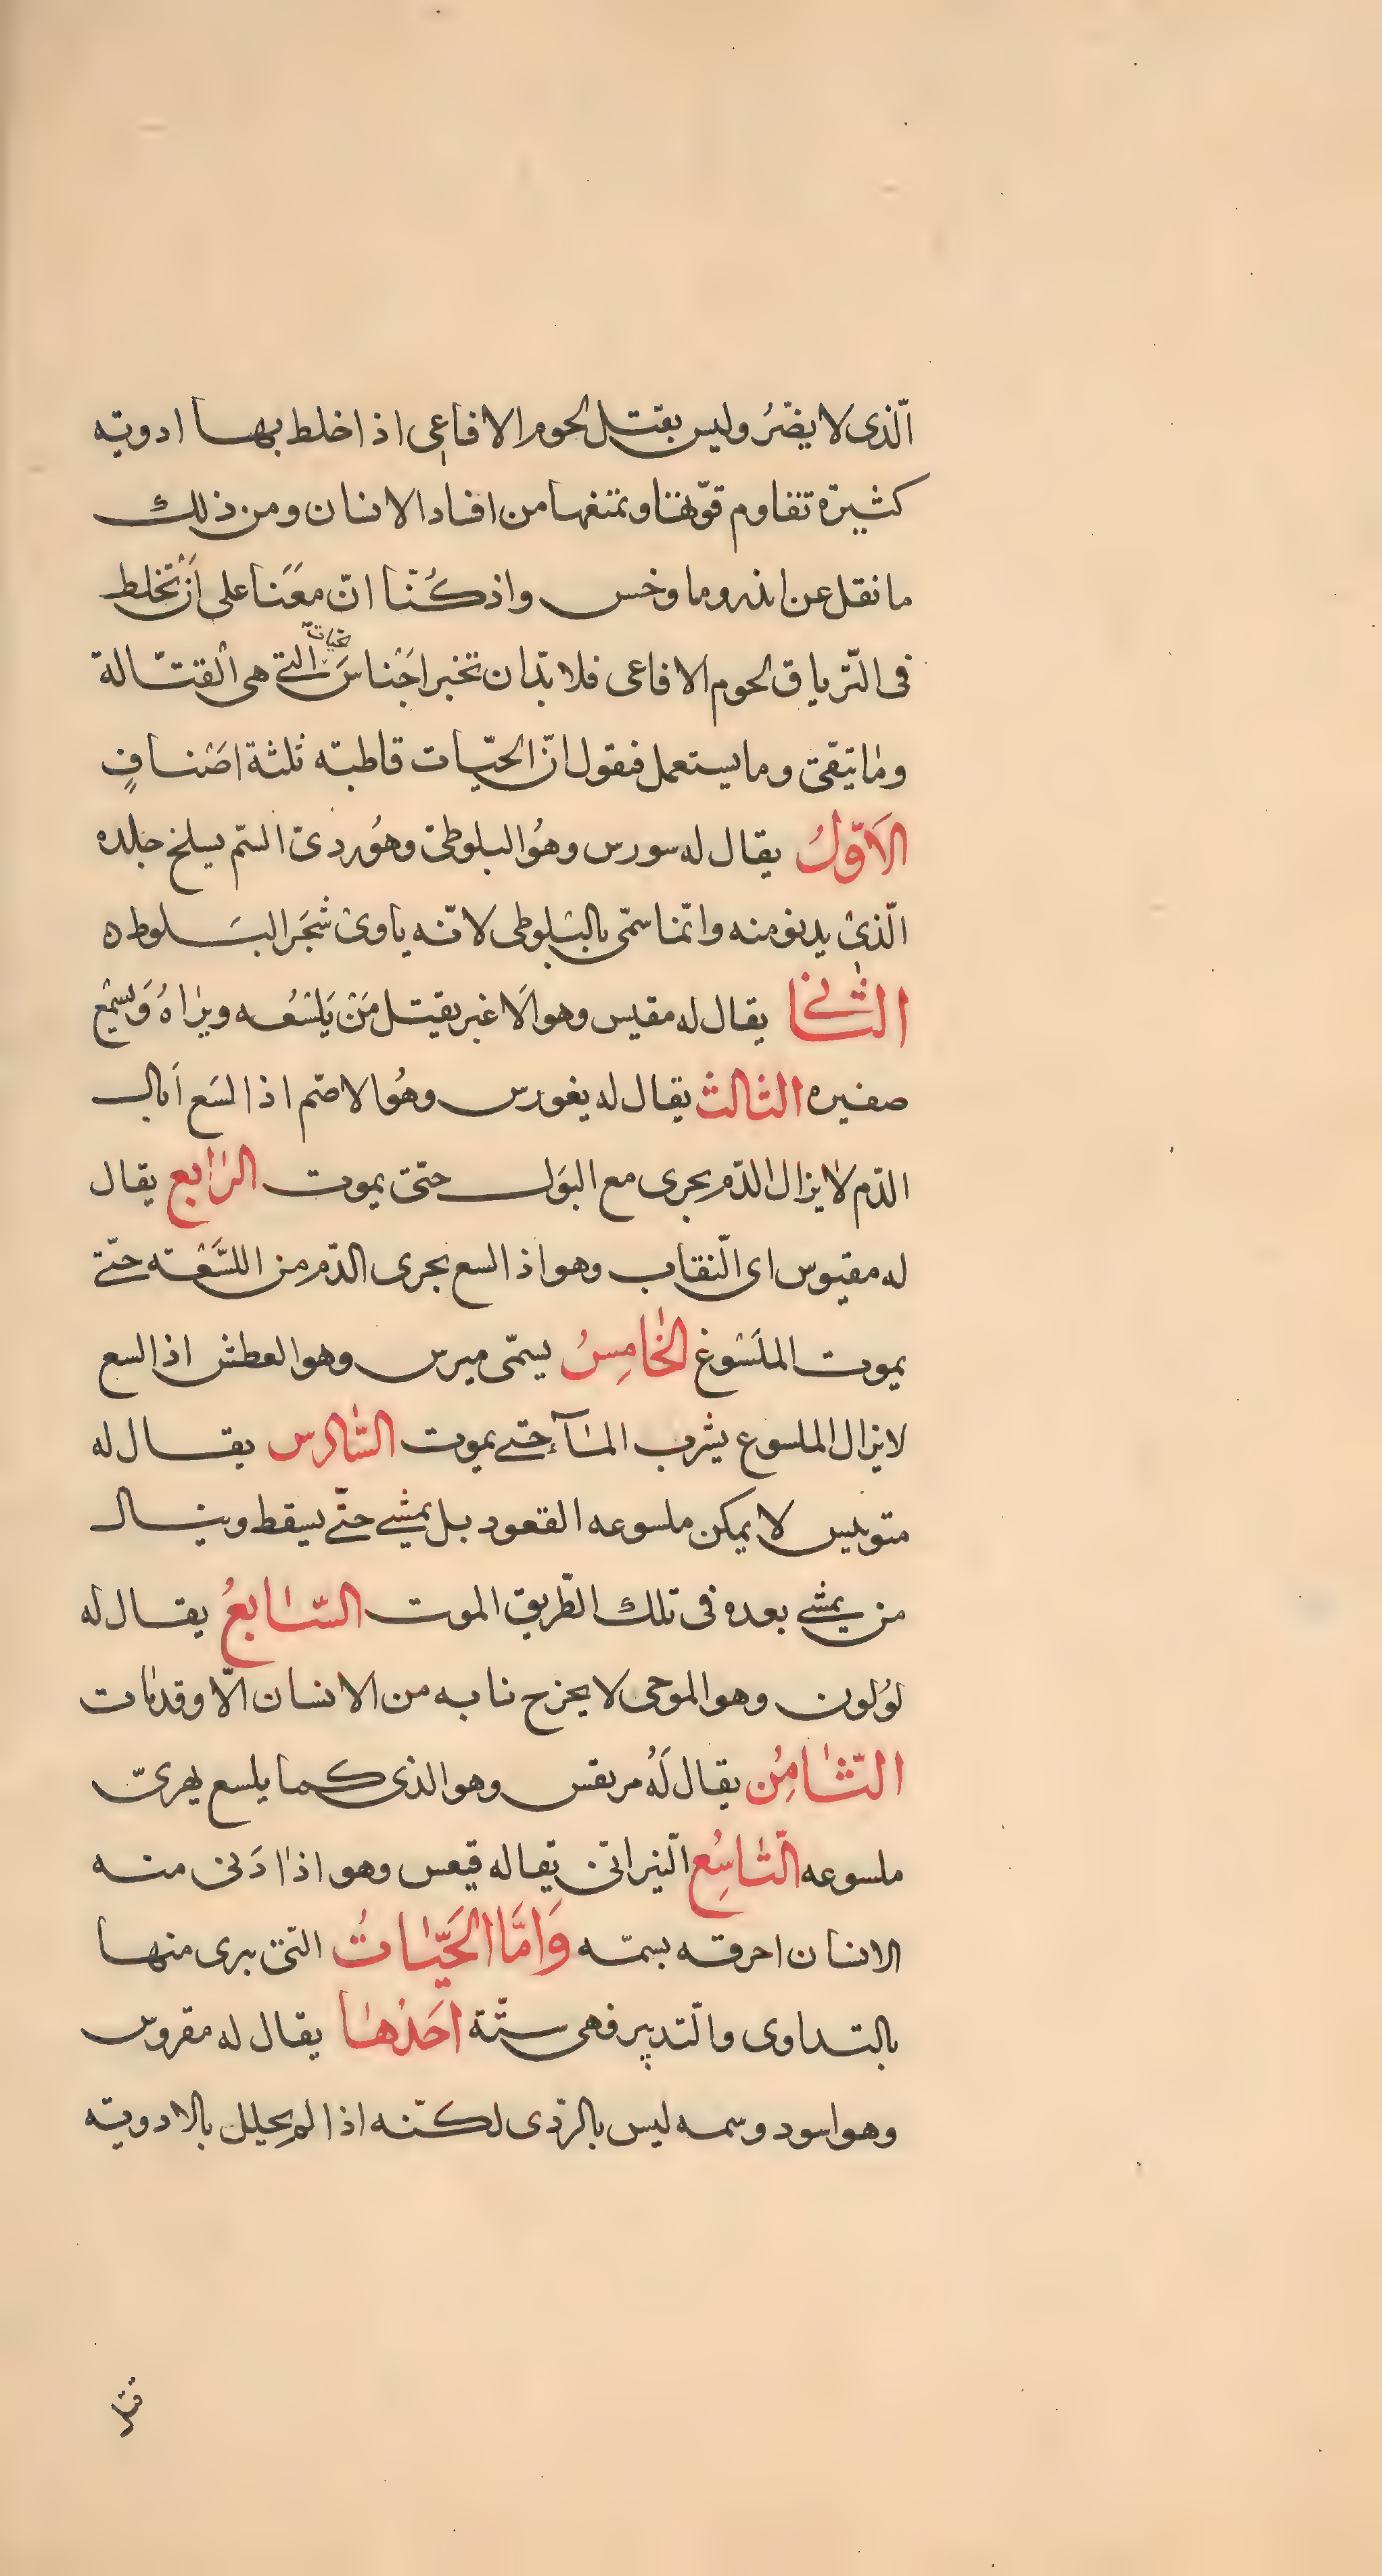 الّذى لا يضّرُ وليس بقتل لحوم الافاعى اذا خلط بها ادوية
كثيرة تقاوم قوّتها وتمنعها من افساد الانسان ومن ذلك
ما نقل عن اندروماوخس واذ كُنّا انّ معَنا على اَنْ تخلط
فى التّرياق لحوم الافاعى فلا بدّ ان تخبر اجْناسَ الحيات التى هى القتّالة
وما يتقى وما يستعمل فنقول انّ الحيّات قاطبة ثلثة اصْنافٍ
الاَوّلُ يقال له سورس وهُو البلوطى وهُو ردىّ السّم يسلخ جلده
الّذىْ يدنو منه وانّما سمّى بالبَلوطى لانّه ياوىْ شجَر البَلوط ه
الثّانى يقال له مقيس وهو الَاغبر يقتل مَنْ يَلسْعُه ويراهُ وَيسْمع
صفيره الثالث يقال له يغورس وهُو الاصّم اذا لسَع اَبال
الدّم لا يزال الدّم يجرى مع البوَل حتّى يموت الرابع يقال
له مقيوس اى النّقاب وهو اذا لسع يجرى الدّم من اللسَّعْة حتّى
يموت الملَسْوغ الخامِسُ يسمّى ميرس وهو العطش اذا لسع
لا يزال الملسوع يشرب المآء حتى يموت السّادس يقال له
متوبيس لا يمكن ملسوعه القعود بل يمشى حتّى يسقط وينال
من يمشى بعده فى تلك الطّريق الموت السّابعُ يقال له
لوُلون وهو الموحى لا يخرج نابه من الانسان الّا وقد مات
الثّامِنُ يقال لَهُ مريقس وهو الذى كما يلسع يهرىّ
ملسوعه التّاسِعُ النّيرانى يقاله قيعس وهو اذا دَنى منه
الانسان احرقه بسمّه وَامَّا الحَيّاتُ التّى يبرى منها
بالتداوى والتّدبير فهى ستّة احَدُها يقال له مقروس
وهو اسود وسمه ليس بالرّدى لكنّه اذا لم يحلل بالادوية
قتل